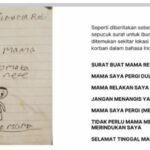 MAMA
Seperti diberitakan sebe
sepucuk surat untuk ibun
ditemukan sekitar lokasi
korban dalam bahasa Ind
SURAT BUAT MAMA RE
MAMA SAYA PERGI DUL
MAMA RELAKAN SAYA
JANGAN MENANGIS YA
MAMA SAYA PERGI (ME
TIDAK PERLU MAMA ME
MERINDUKAN SAYA
SELAMAT TINGGAL MA